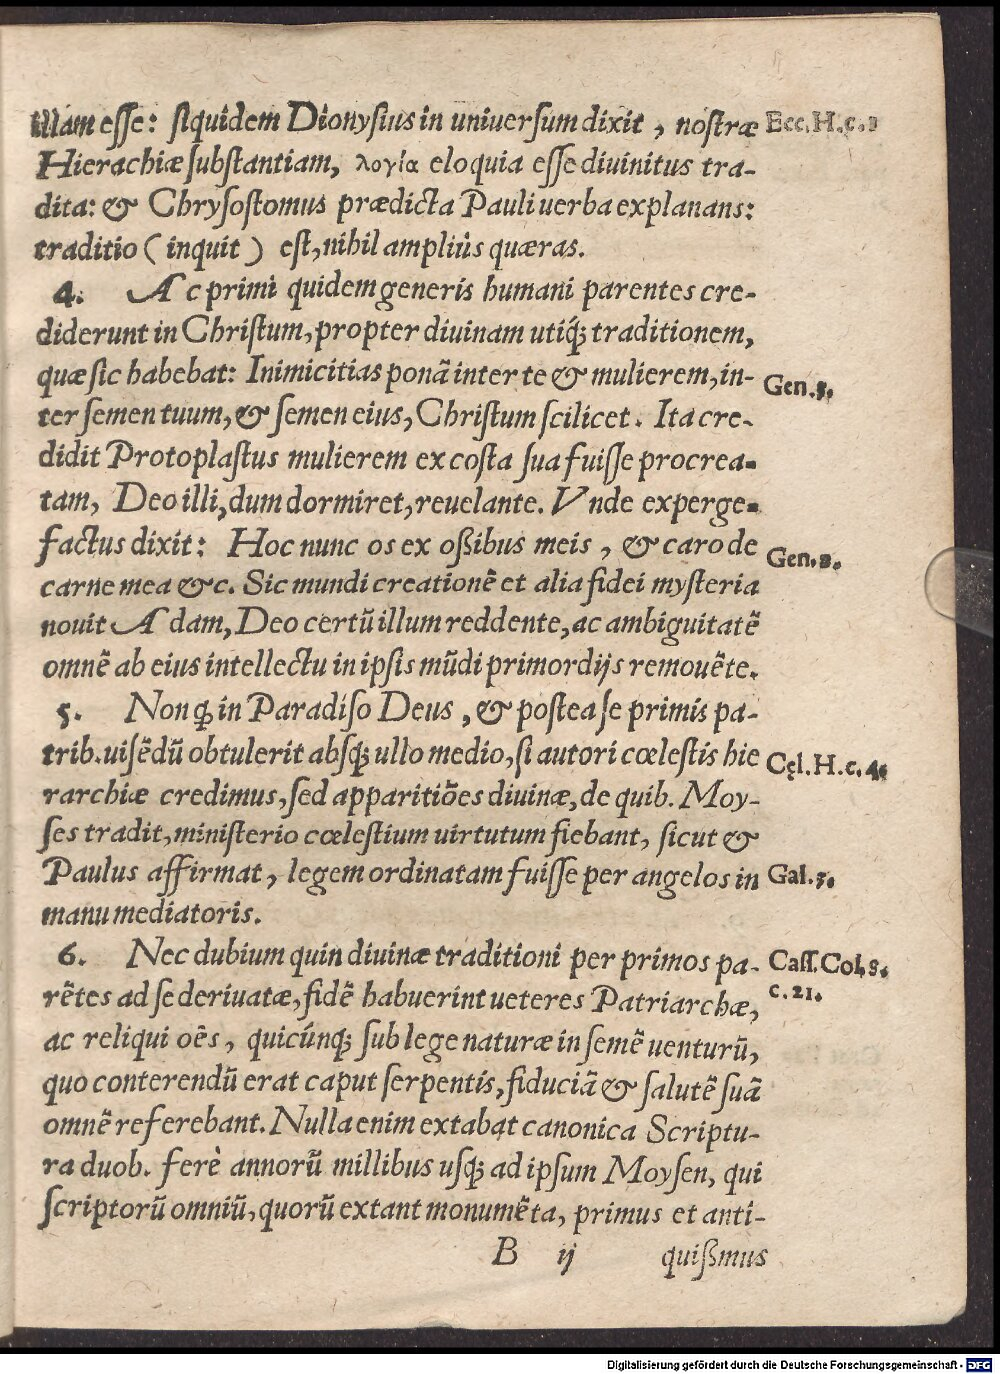 illam esse: siquidem Dionysius in uniuersum dixit, nostræ Ecc.H.c.
Hierachiæ substantiam, λογία eloquia esse diuinitus tra-
dita: & Chrysostomus prædicta Pauli uerba explanans:
traditio (inquit) est, nihil ampliùs quæras.
4. Ac primi quidem generis humani parentes cre-
diderunt in Christum, propter diuinam utiq́; traditionem,
quæ sic habebat: Inimicitias ponã inter te & mulierem, in- Gen.3.
ter semen tuum, & semen eius, Christum scilicet. Ita cre-
didit Protoplastus mulierem ex costa sua fuisse procrea-
tam, Deo illi, dum dormiret, reuelante. Vnde experge-
factus dixit: Hoc nunc os ex oßibus meis, & caro de Gen.2.
carne mea &c. Sic mundi creationẽ et alia fidei mysteria
nouit Adam, Deo certũ illum reddente, ac ambiguitatẽ
omnẽ ab eius intellectu in ipsis mũdi primordijs remouẽte.
5. Non ꝙ in Paradiso Deus, & postea se primis pa-
trib. uisẽdũ obtulerit absq; ullo medio, si autori cœlestis hie Cęl.H.c.4.
rarchiæ credimus, sed apparitiões diuinæ, de quib. Moy-
ses tradit, ministerio cœlestium uirtutum fiebant, sicut &
Paulus affirmat, legem ordinatam fuisse per angelos in Gal.3.
manu mediatoris.
6. Nec dubium quin diuinæ traditioni per primos pa- Cass.Col.8.
rẽtes ad se deriuatæ, fidẽ habuerint ueteres Patriarchæ, c.21.
ac reliqui oẽs, quicúnq; sub lege naturæ in semẽ uenturũ,
quo conterendũ erat caput serpentis, fiduciã & salutẽ suã
omnẽ referebant. Nulla enim extabat canonica Scriptu-
ra duob. ferè annorũ millibus usq; ad ipsum Moysen, qui
scriptorũ omniũ, quorũ extant monumẽta, primus et anti-
B ij quißmus
Digitalisierung gefördert durch die Deutsche Forschungsgemeinschaft - DFG